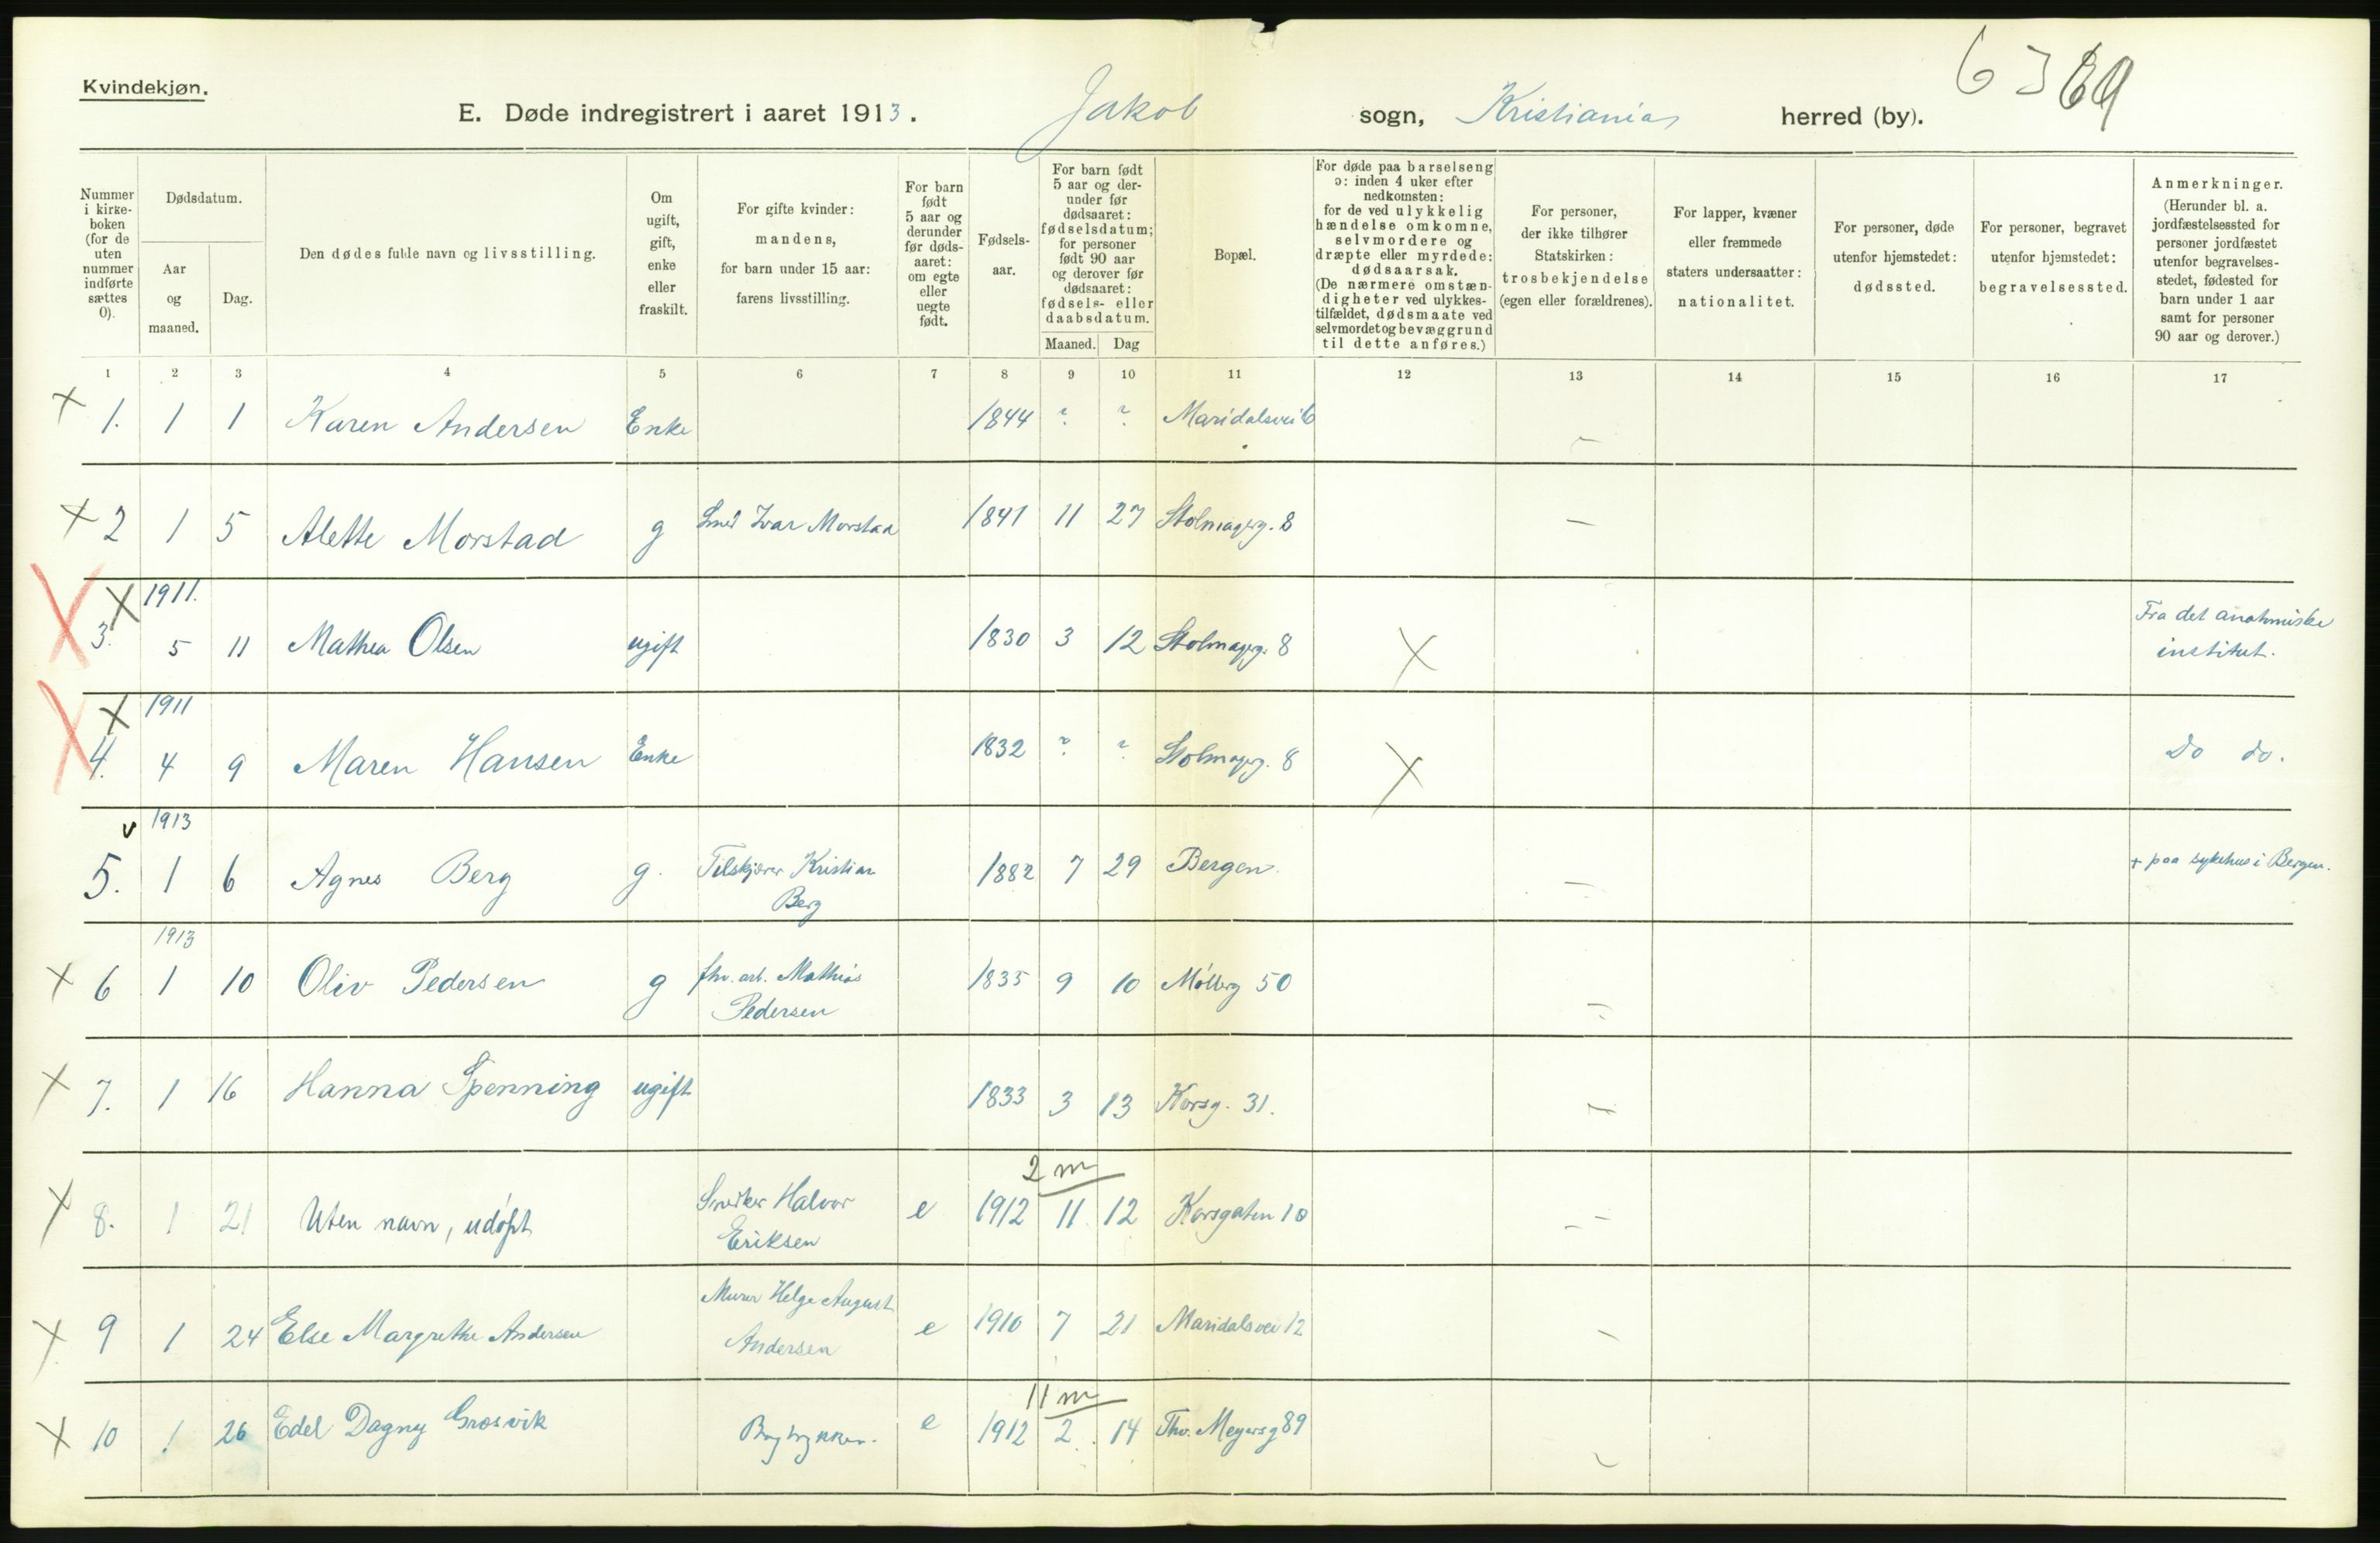 Kvindekjøn.
E. Døde indregistrert i aaret 1913. Jakob sogn, Kristiania herred (by).
Nummer i kirke-boken (for de uten nummer indførte sættes 0).
Dødsdatum.
Aar og maaned.
Dag.
Den dødes fulde navn og livsstilling.
Om ugift, gift, enke eller fraskilt.
For gifte kvinder: mandens, for barn under 15 aar: farens livsstilling.
For barn født 5 aar og derunder før døds-aaret: om egte eller uegte født.
Fødsels-aar.
For barn født 5 aar og der-under før dødsaaret: fødselsdatum; for personer født 90 aar og derover før dødsaaret: fødsels- eller daabsdatum.
Maaned. Dag
Bopæl.
For døde paa barselseng ɔ: inden 4 uker efter nedkomsten: for de ved ulykkelig hændelse omkomne, selvmordere og dræpte eller myrdede: dødsaarsak. (De nærmere omstæn-digheter ved ulykkes-tilfældet, dødsmaate ved selvmordet og bevæggrund til dette anføres.)
For personer, der ikke tilhører Statskirken: trosbekjendelse (egen eller forældrenes).
For lapper, kvæner eller fremmede staters undersaatter: nationalitet.
For personer, døde utenfor hjemstedet: dødssted.
For personer, begravet utenfor hjemstedet: begravelsessted.
Anmerkninger. (Herunder bl. a. jordfæstelsessted for personer jordfæstet utenfor begravelses-stedet, fødested for barn under 1 aar samt for personer 90 aar og derover.)
1 2 3 4 5 6 7 8 9 10 11 12 13 14 15 16 17
1. 1 1 Karen Andersen Enke 1844 ? ? Maridalsvei 6
2 1 5 Alette Morstad g Smed Ivar Morstad 1841 11 27 Stolmagerg. 8
1911.
3. 5 11 Mathea Olsen ugift 1830 3 12 Stolmagerg. 8 Fra det anatomiske
institut.
1911
4. 4 9 Maren Hansen Enke 1832 ? ? Stolmagerg. 8 Do do.
1913
5. 1 6 Agnes Berg g. Tilskjærer Kristian 1882 7 29 Bergen. + paa sykehus i Bergen.
Berg
1913
6 1 10 Oliv Pedersen g fhv. arb. Mathias 1835 9 10 Møllerg 50
Pedersen
7. 1 16 Hanna Spenning ugift 1833 3 13 Korsg. 31.
2 m
8. 1 21 Uten navn, udøpt Snedker Halvor e 1912 11 12 Korsgaten 10
Eriksen
9 1 24 Else Margrethe Andersen Murer Helge August e 1910 7 21 Maridalsvei 12
Andersen
11 m
10 1 26 Edel Dagny Grosvik Bogtrykker. e 1912 2 14 Thv. Meyersg 89